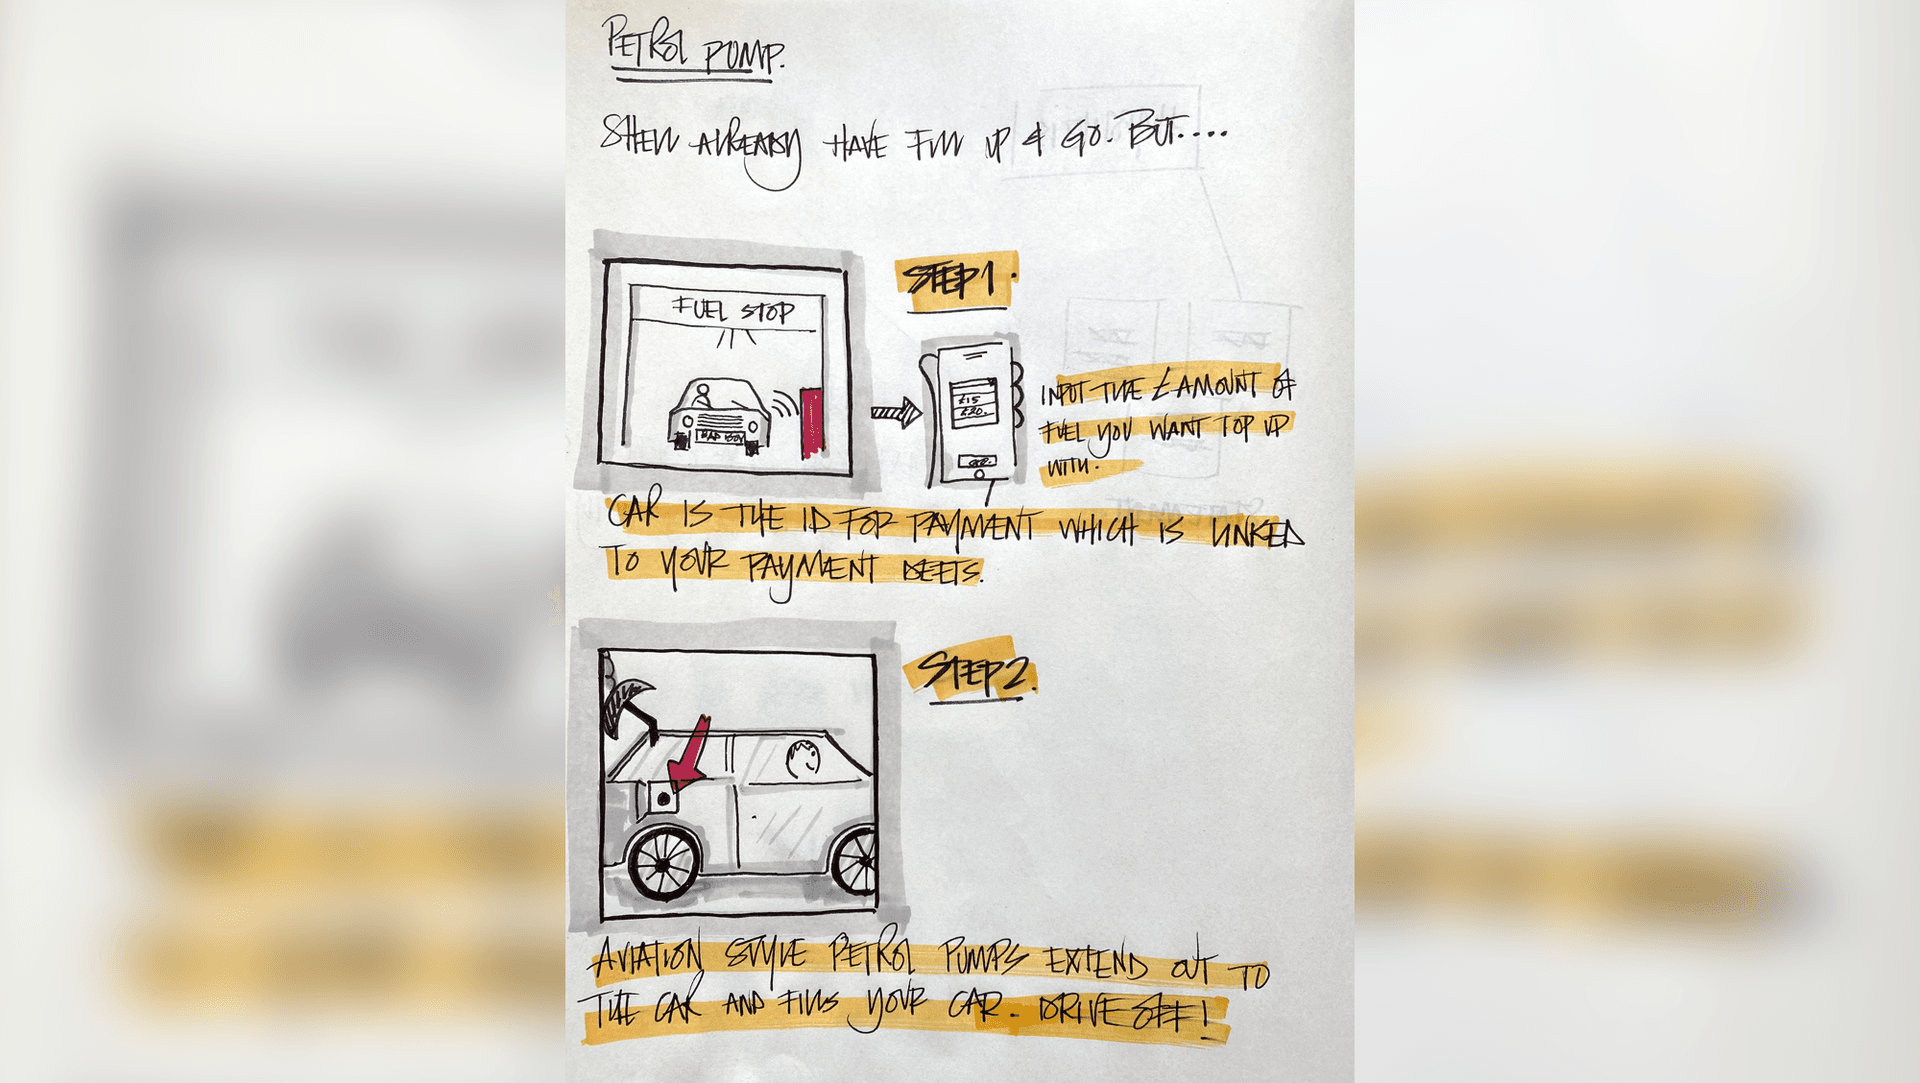 PETROL PUMP.
SHELL ALREADY HAVE FILL UP & GO. BUT....
FUEL STOP
BAD BOY
STEP 1.
£15
£20.
INPUT THE £ AMOUNT OF
FUEL YOU WANT TOP UP
WITH.
CAR IS THE ID FOR PAYMENT WHICH IS LINKED
TO YOUR PAYMENT DEETS.
STEP 2.
AVIATION STYLE PETROL PUMPS EXTEND OUT TO
THE CAR AND FILLS YOUR CAR. DRIVE OFF!